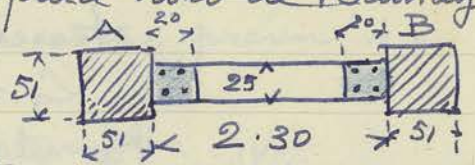 A 20 20 B
51 25
51 2.30 51